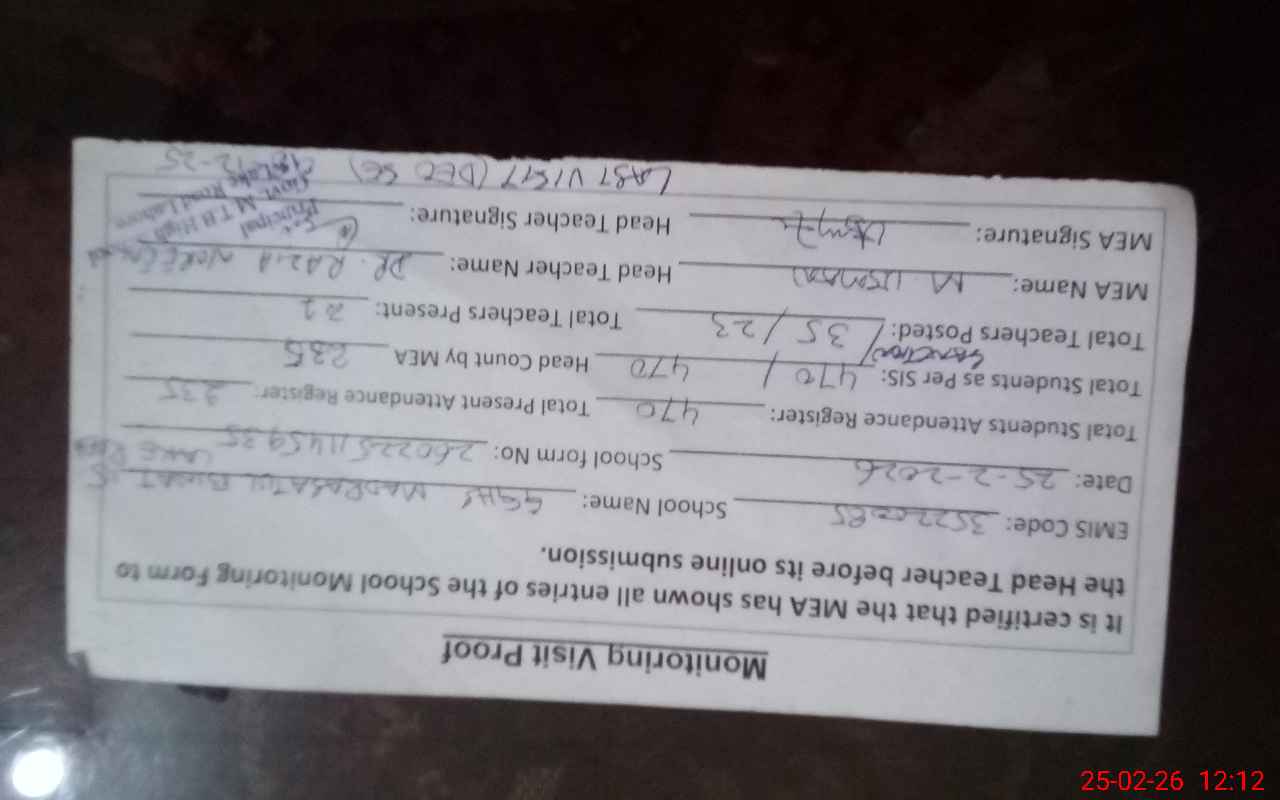 Monitoring Visit Proof
It is certified that the MEA has shown all entries of the School Monitoring Form to
the Head Teacher before its online submission.
EMIS Code: 35220085 School Name: GGHS MADRASATUL BINAT 15
LAKE ROAD
Date: 25-2-2026 School form No: 26022511145935
Total Students Attendance Register: 470 Total Present Attendant Register: 235
Total Students as Per SIS: 470 / 470 Head Count by MEA 235
Sanction
Total Teachers Posted: 35 / 23 Total Teachers Present: 22
MEA Name: M. USMAN Head Teacher Name: DR. RAZIA
MEA Signature: Head Teacher Signature:
Principal
Govt. M.T.B High
Lake Road Lahore
LAST VISIT (DEO SE) 12-25
25-02-26 12:12